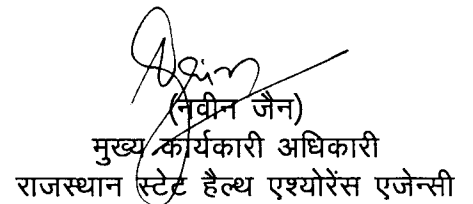 (नवीन जैन)
मुख्य कार्यकारी अधिकारी
राजस्थान स्टेट हैल्थ एश्योरेंस एजेन्सी